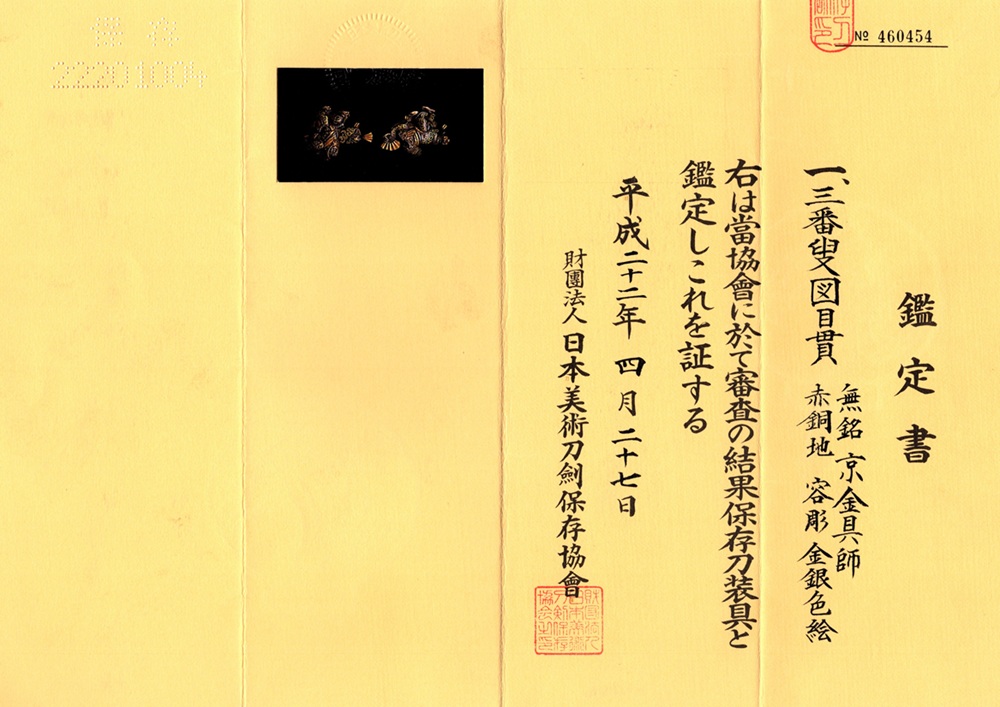 No 460454
鑑定書
一、三番叟図目貫
無銘 京金具師
赤銅地 容彫 金銀色絵
右は當協會に於て審査の結果保存刀装具と
鑑定しこれを証する
平成二十二年 四月 二十七日
財團法人 日本美術刀劍保存協會
保存